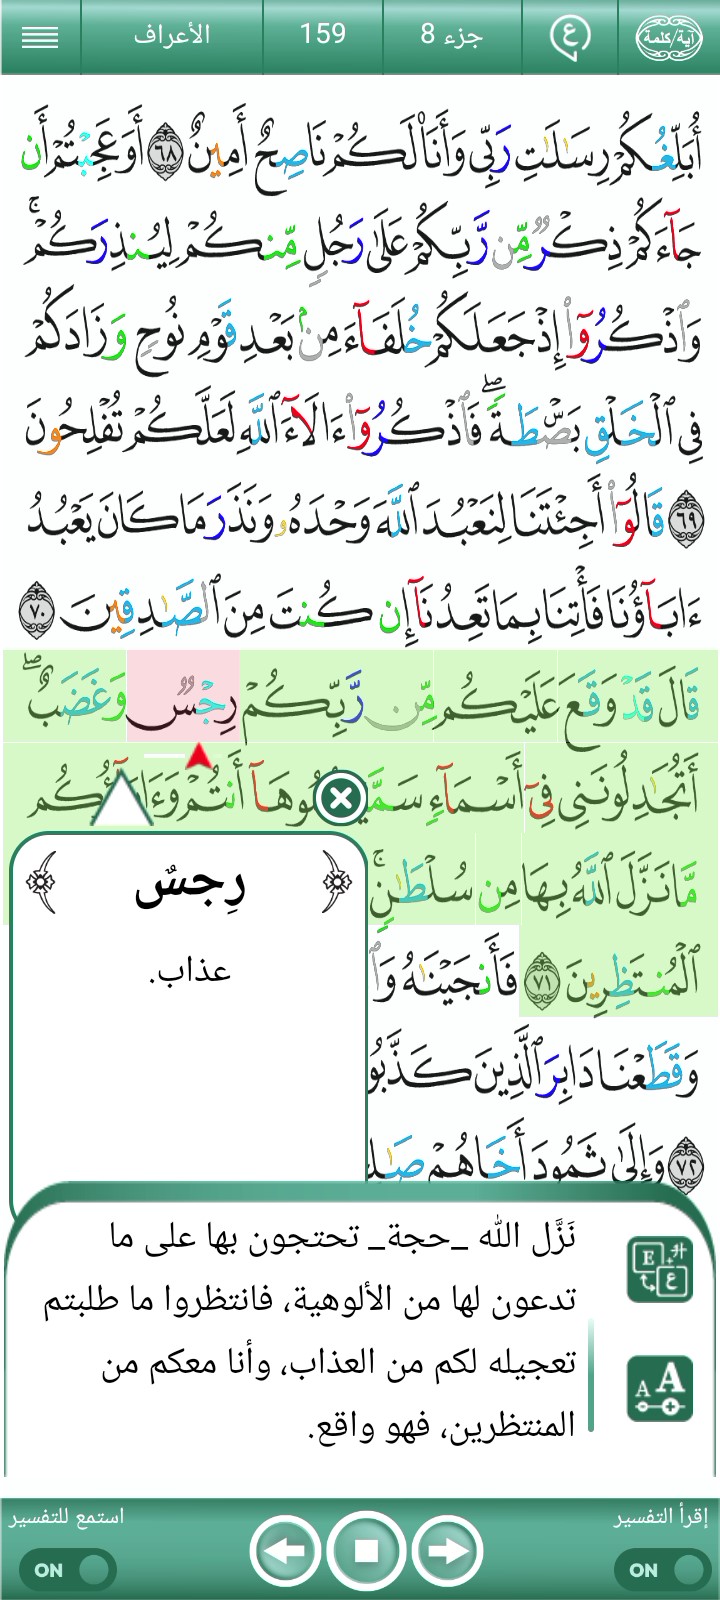 آية/كلمة
ع
جزء 8
159
الأعراف
أُبَلِّغُكُمْ رِسَـٰلَـٰتِ رَبِّى وَأَنَا۠ لَكُمْ نَاصِحٌ أَمِينٌ ٦٨ أَوَعَجِبْتُمْ أَن
جَآءَكُمْ ذِكْرٌ مِّن رَّبِّكُمْ عَلَىٰ رَجُلٍ مِّنكُمْ لِيُنذِرَكُمْ ۚ
وَٱذْكُرُوٓا۟ إِذْ جَعَلَكُمْ خُلَفَآءَ مِنۢ بَعْدِ قَوْمِ نُوحٍ وَزَادَكُمْ
فِى ٱلْخَلْقِ بَصْۜطَةً ۖ فَٱذْكُرُوٓا۟ ءَالَآءَ ٱللَّهِ لَعَلَّكُمْ تُفْلِحُونَ
٦٩ قَالُوٓا۟ أَجِئْتَنَا لِنَعْبُدَ ٱللَّهَ وَحْدَهُۥ وَنَذَرَ مَا كَانَ يَعْبُدُ
ءَابَآؤُنَا فَأْتِنَا بِمَا تَعِدُنَآ إِن كُنتَ مِنَ ٱلصَّـٰدِقِينَ ٧٠
قَالَ قَدْ وَقَعَ عَلَيْكُم مِّن رَّبِّكُمْ رِجْسٌ وَغَضَبٌ ۖ
أَتُجَـٰدِلُونَنِى فِىٓ أَسْمَآءٍ سَمَّيْتُمُوهَآ أَنتُمْ وَءَابَآؤُكُم
مَّا نَزَّلَ ٱللَّهُ بِهَا مِن سُلْطَـٰنٍ ۚ
ٱلْمُنتَظِرِينَ ٧١ فَأَنجَيْنَـٰهُ وَٱ
وَقَطَعْنَا دَابِرَ ٱلَّذِينَ كَذَّبُو
٧٢ وَإِلَىٰ ثَمُودَ أَخَاهُمْ صَـٰلِ
رِجسٌ
عذاب.
نَزَّل الله _حجة_ تحتجون بها على ما
تدعون لها من الألوهية، فانتظروا ما طلبتم
تعجيله لكم من العذاب، وأنا معكم من
المنتظرين، فهو واقع.
E ع
A A
إقرأ التفسير
استمع للتفسير
ON
ON